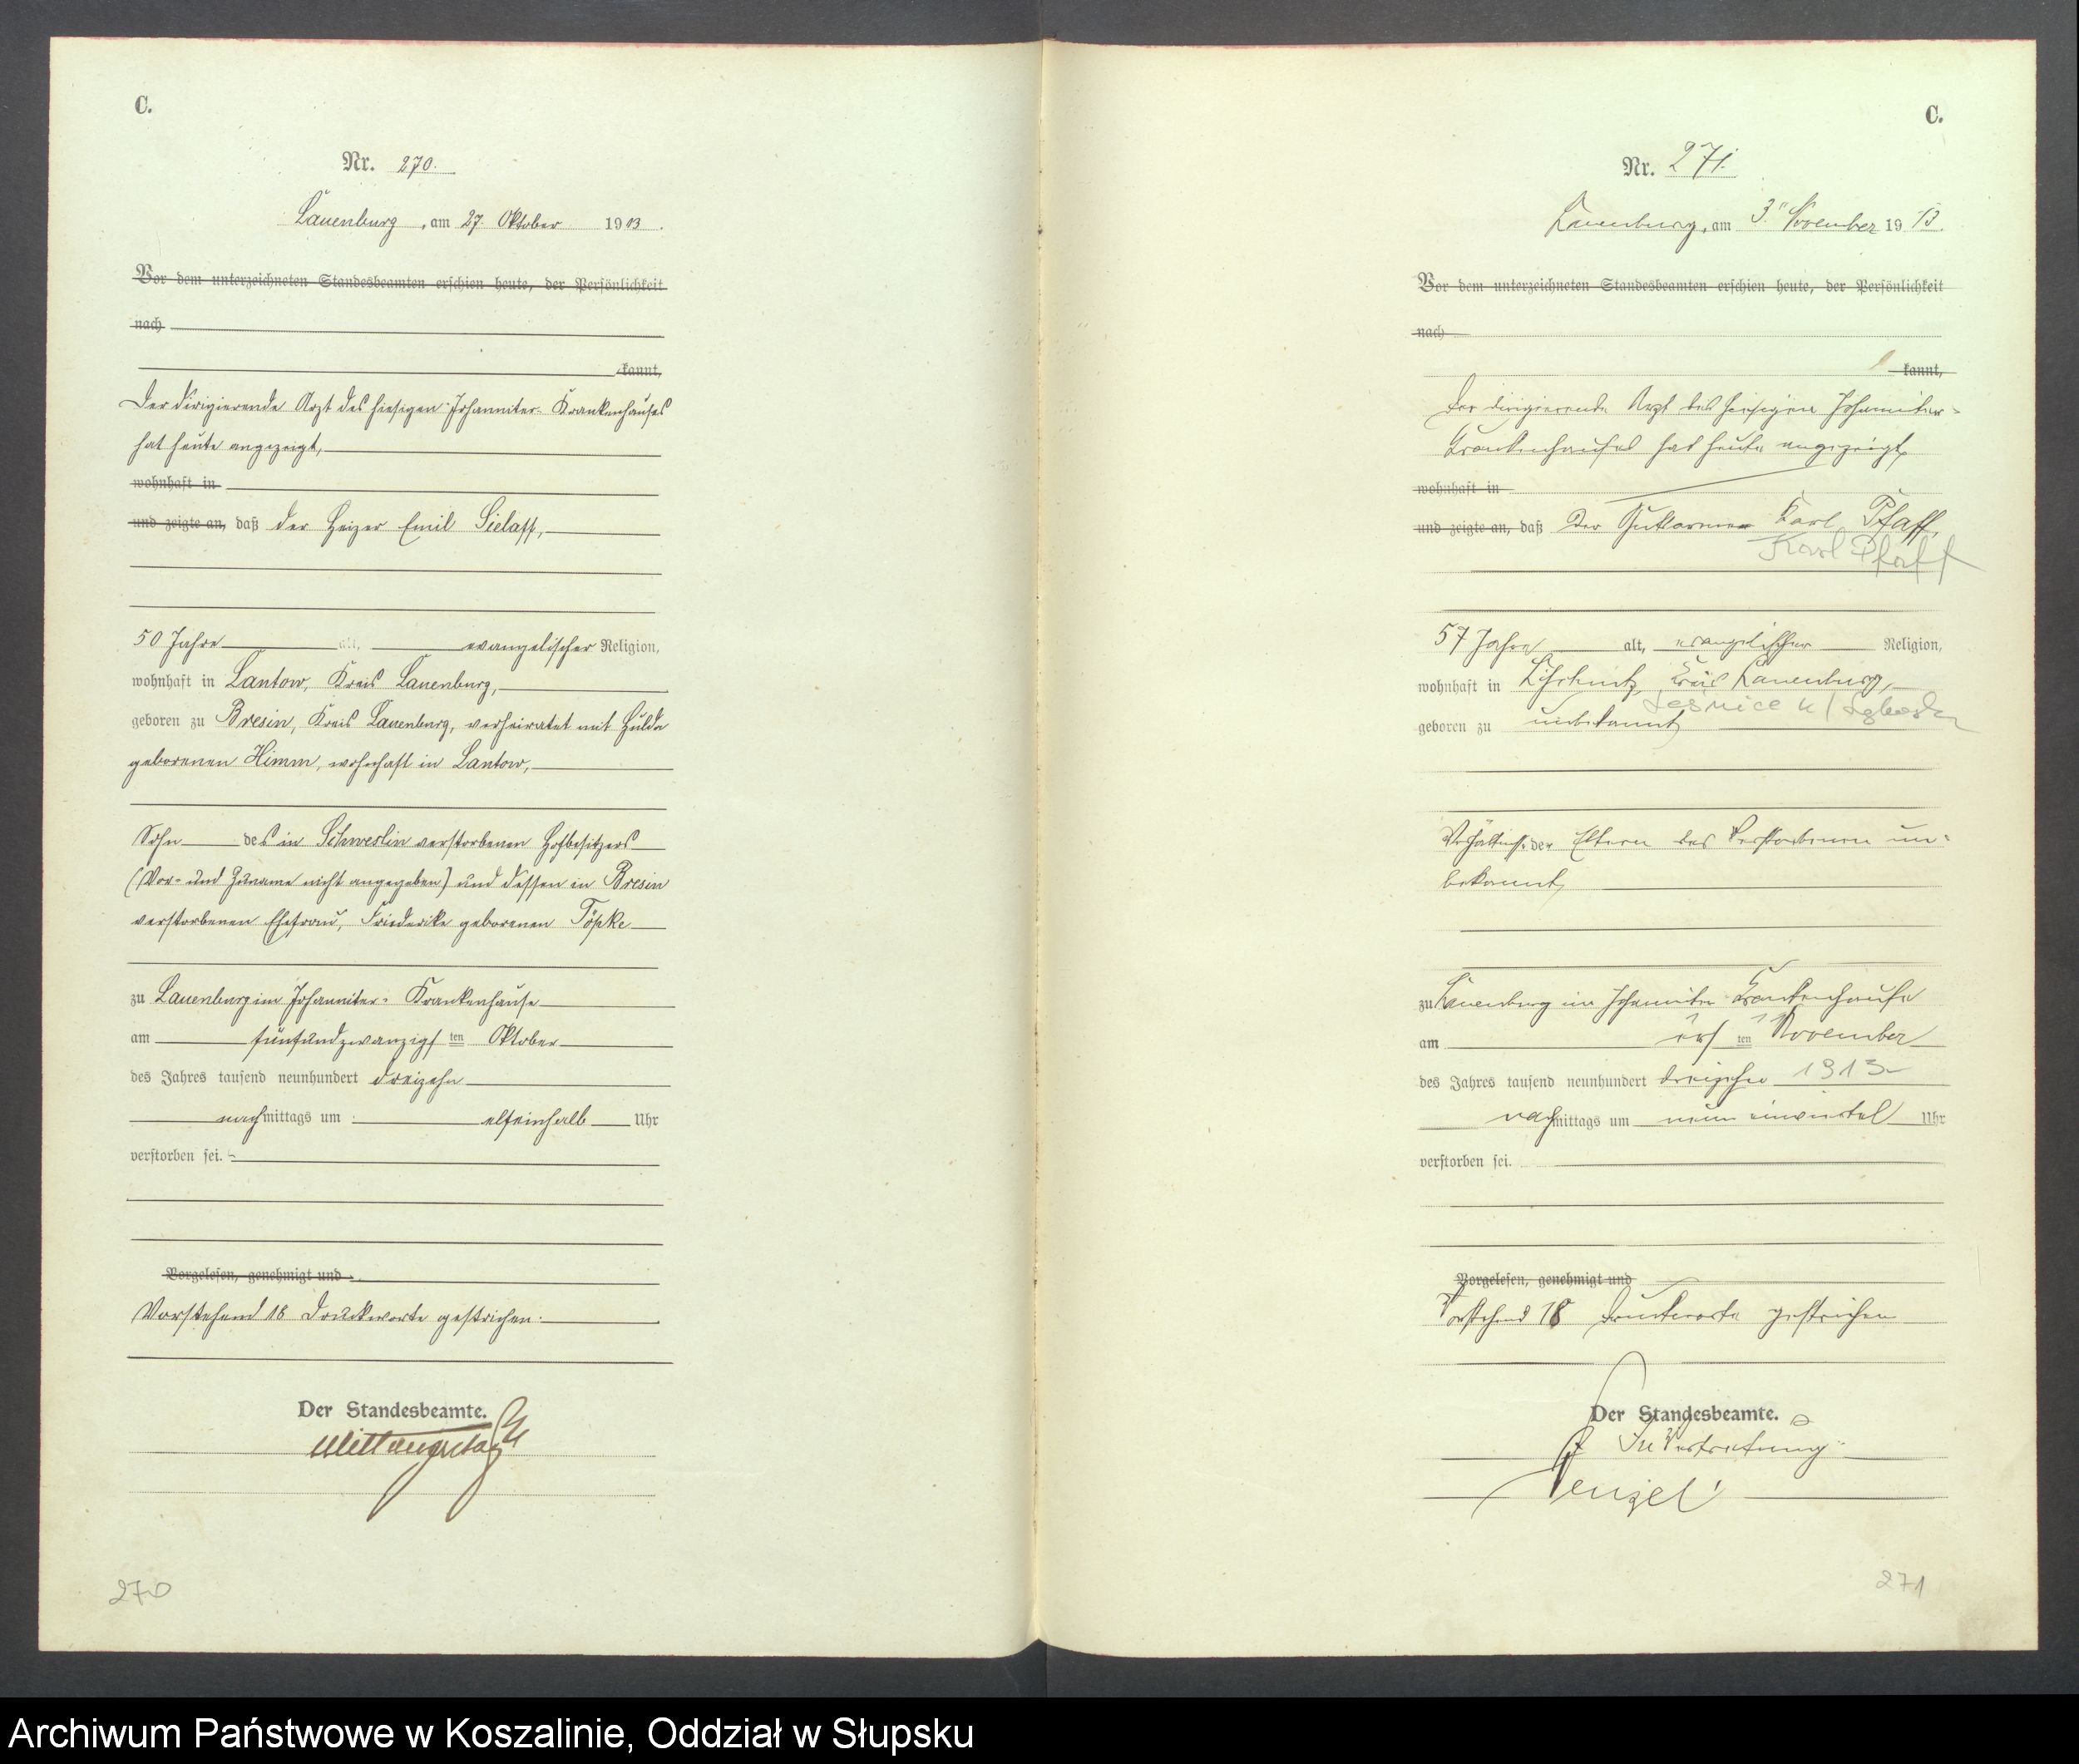 C.
Nr. 270.
Lauenburg, am 27. Oktober 1913.
Vor dem unterzeichneten Standesbeamten erschien heute, der Persönlichkeit
nach
kannt,
Der dirigierende Arzt des hiesigen Johanniter-Krankenhauses
hat heute angezeigt,
wohnhaft in
und zeigte an, daß der Heizer Emil Sielaff,
50 Jahre alt, evangelischer Religion,
wohnhaft in Lantow, Kreis Lauenburg,
geboren zu Bresin, Kreis Lauenburg, verheiratet mit Hulda
geborenen Himm, wohnhaft in Lantow,
Sohn des in Schweslin verstorbenen Hofbesitzers
(Vor- und Zuname nicht angegeben) und dessen in Bresin
verstorbenen Ehefrau, Friederike geborenen Töpke
zu Lauenburg im Johanniter-Krankenhause
am fünfundzwanzigsten Oktober
des Jahres tausend neunhundert dreizehn
nachmittags um elfeinhalb Uhr
verstorben sei.
Vorgelesen, genehmigt und
Vorstehend 18 Druckworte gestrichen.
Der Standesbeamte.
270
C.
Nr. 271.
Lauenburg, am 3. November 1913.
Vor dem unterzeichneten Standesbeamten erschien heute, der Persönlichkeit
nach
kannt,
Der dirigierende Arzt des hiesigen Johanniter-
Krankenhauses hat heute angezeigt,
wohnhaft in
und zeigte an, daß der Karl Pfaff,
Karl Pfaff
57 Jahre alt, evangelischer Religion,
wohnhaft in Kreis Lauenburg,
Leśnice
geboren zu unbekannt,
Verhältnisse der Eltern des Verstorbenen un-
bekannt,
zu Lauenburg im Johanniter-Krankenhause
am ersten November
des Jahres tausend neunhundert dreizehn 1913
nachmittags um neun einviertel Uhr
verstorben sei.
Vorgelesen, genehmigt und
Vorstehend 18 Druckworte gestrichen
Der Standesbeamte.
In Vertretung:
271
Archiwum Państwowe w Koszalinie, Oddział w Słupsku